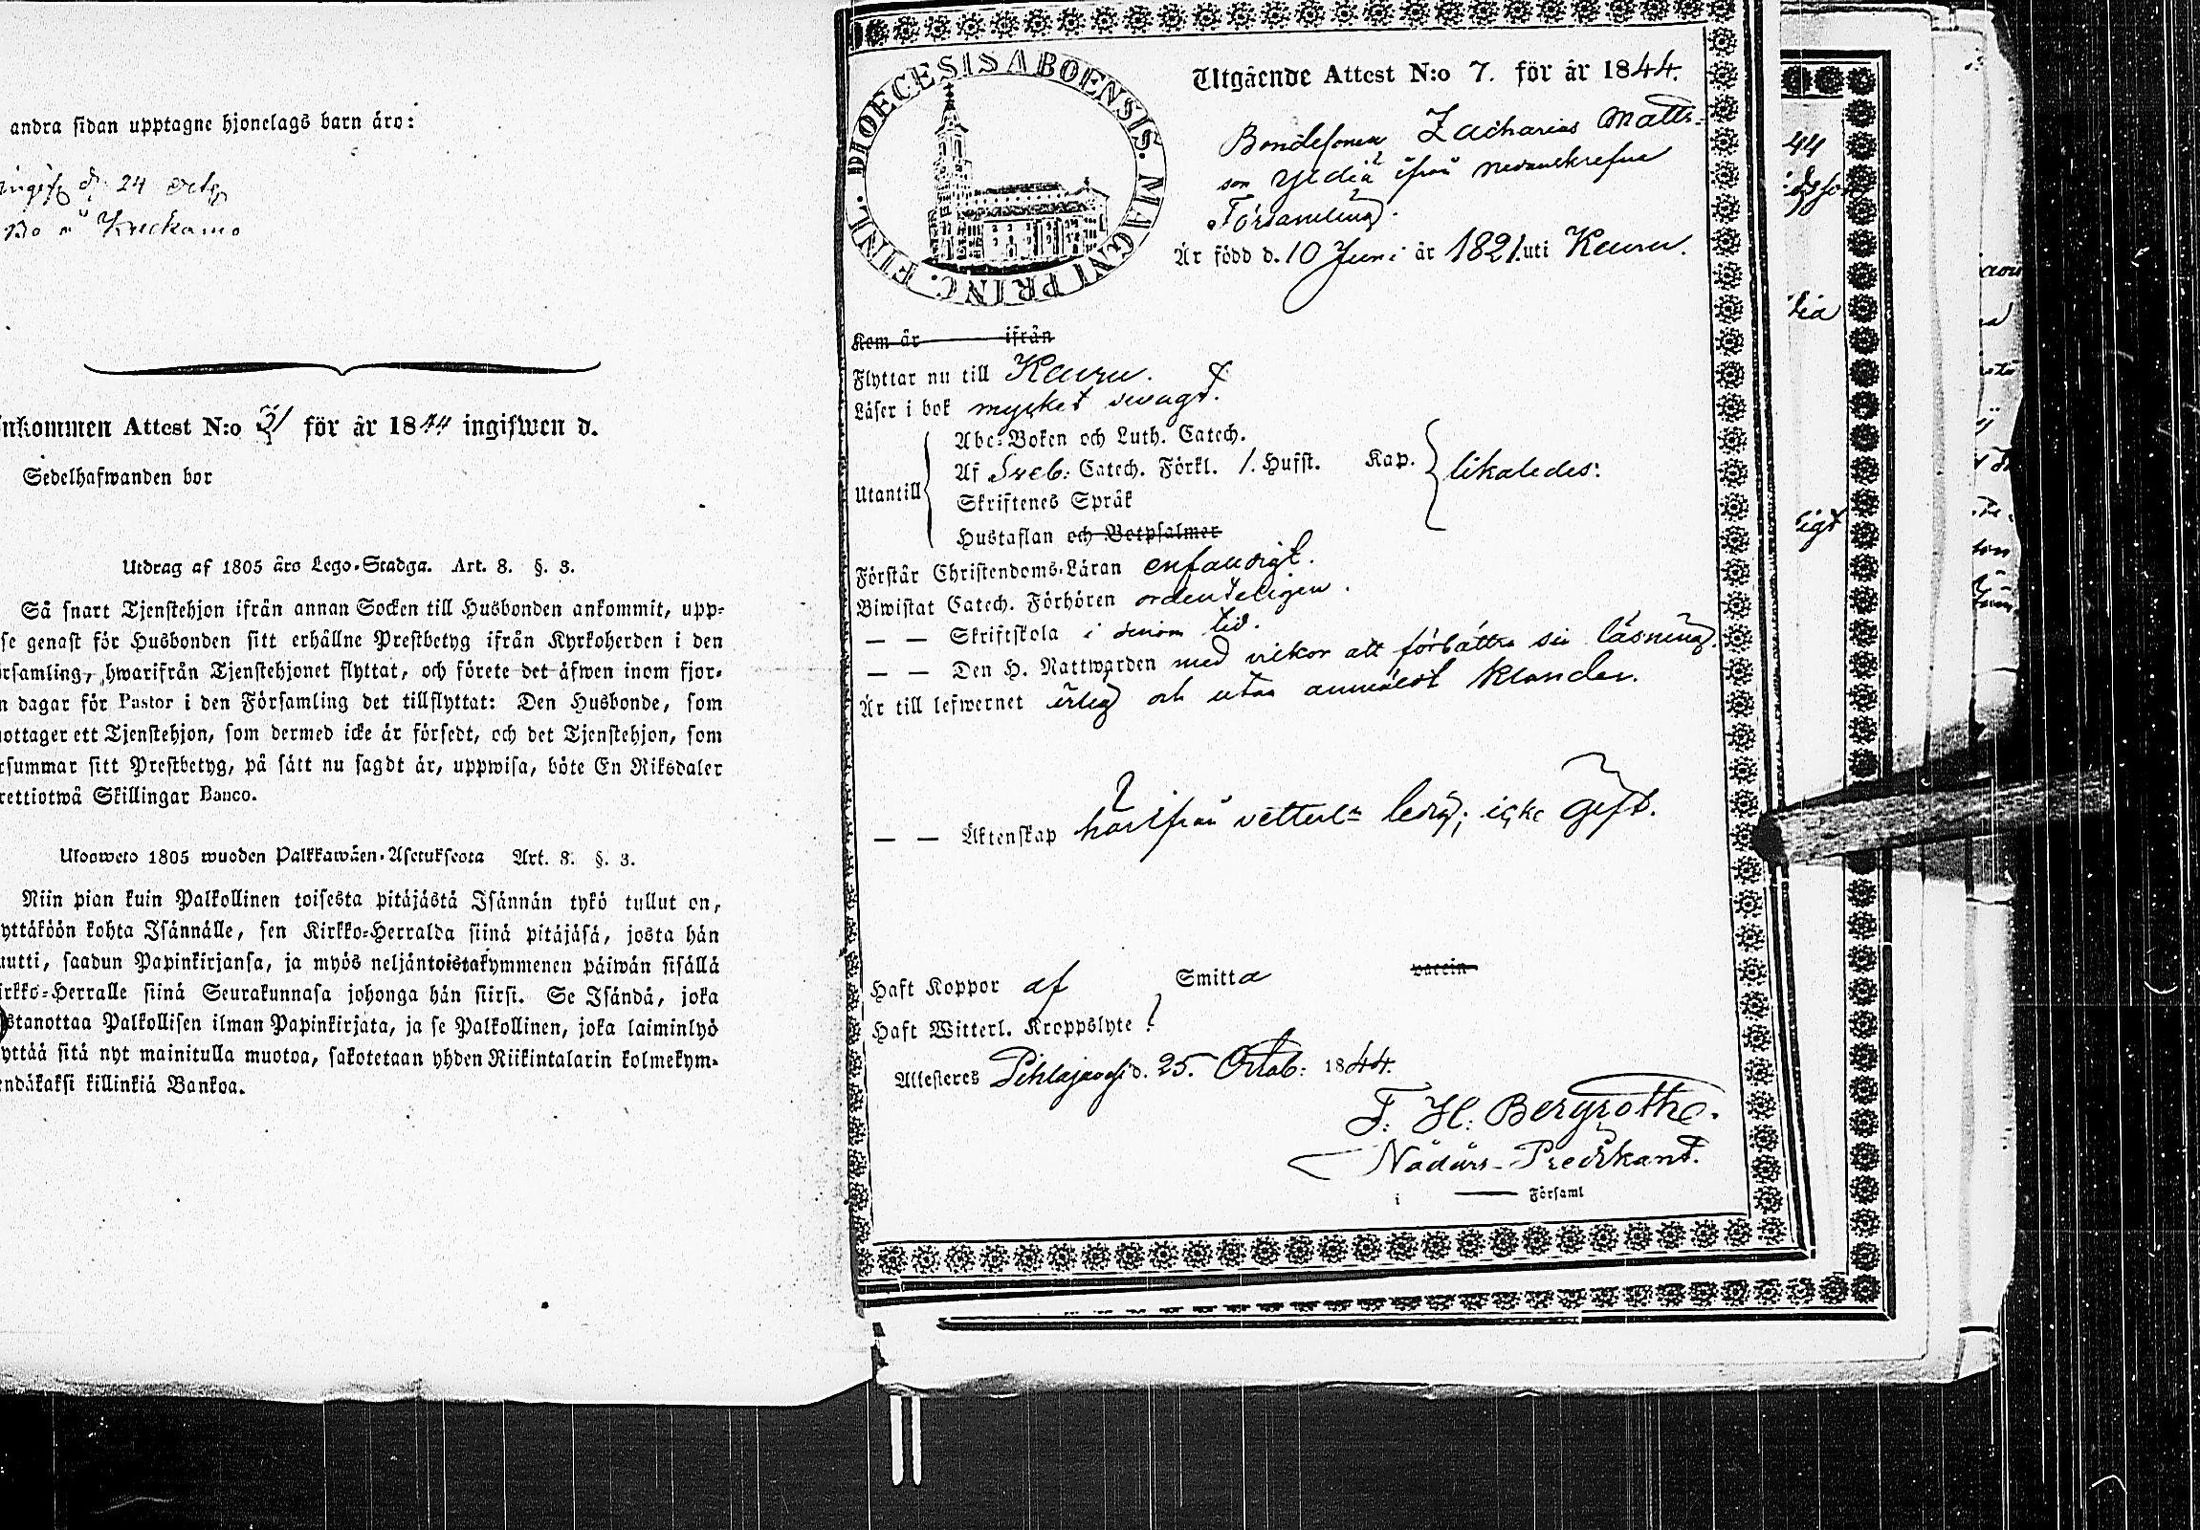 andra sidan upptagne hjonelags barn äro:
d. 24
Bo
nkommen Attest N:o 31 för år 1844 ingifwen d.
Sedelhafwanden bor
Utdrag af 1805 års Lego-Stadga. Art. 8. §. 3.
Så snart Tjenstehjon ifrån annan Socken till Husbonden ankommit, upp-
se genast för Husbonden sitt erhållne Prestbetyg ifrån Kyrkoherden i den
rsamling, hwarifrån Tjenstehjonet flyttat, och förete det äfwen inom fjor-
n dagar för Pastor i den Församling det tillflyttat: Den Husbonde, som
ottager ett Tjenstehjon, som dermed icke är försedt, och det Tjenstehjon, som
rsummar sitt Prestbetyg, på sätt nu sagdt är, uppwisa, böte En Riksdaler
rettiotwå Skillingar Banco.
Ulosweto 1805 wuoden Palkkawäen-Asetuksesta Art. 8. §. 3.
Niin pian kuin Palkollinen toisesta pitäjästä Isännän tykö tullut on,
yttäköön kohta Isännälle, sen Kirkko-Herralda siinä pitäjäsä, josta hän
uutti, saadun Papinkirjansa, ja myös neljäntoistakymmenen päiwän sisällä
irkko-Herralle siinä Seurakunnasa johonga hän siirsi. Se Isändä, joka
stanottaa Palkollisen ilman Papinkirjata, ja se Palkollinen, joka laiminlyö
yttää sitä nyt mainitulla muotoa, sakotetaan yhden Riikintalarin kolmekym-
endäkaksi killinkiä Bankoa.
DIOECESIS ABOENSIS. MAGNI PRINC. FINL.
Utgående Attest N:o 7. för år 1844.
Bondesonen Zacharias Matts-
son Ylediä ifrån nedanskrefne
Församling.
Är född d. 10 Juni år 1821. uti Keuru.
Kom år ifrån
Flyttar nu till Keuru.
Läser i bok mycket svagt.
Utantill
Abc-Boken och Luth. Catech.
Af Sveb: Catech. Förkl. 1. Hufst. Kap.
Skriftenes Språk
Hustaflan och Botpsalmer
likaledes:
Förstår Christendoms-Läran enfaldigt.
Biwistat Catech. Förhören ordenteligen.
— — Skriftskola i sinom tid.
— — Den H. Nattwarden med vilkor att förbättra sin läsning.
Är till lefwernet ärlig och utan anmäldt klander.
— — Äktenskap härifrån vetterl:n ledig; icke gift.
Haft Koppor af Smitta vaccin
Haft Witterl. Kroppslyte
Attesteres Pihlajavesi d. 25. Octob: 1844.
F. H. Bergroth.
Nådårs-Predikant.
i — Församl
44